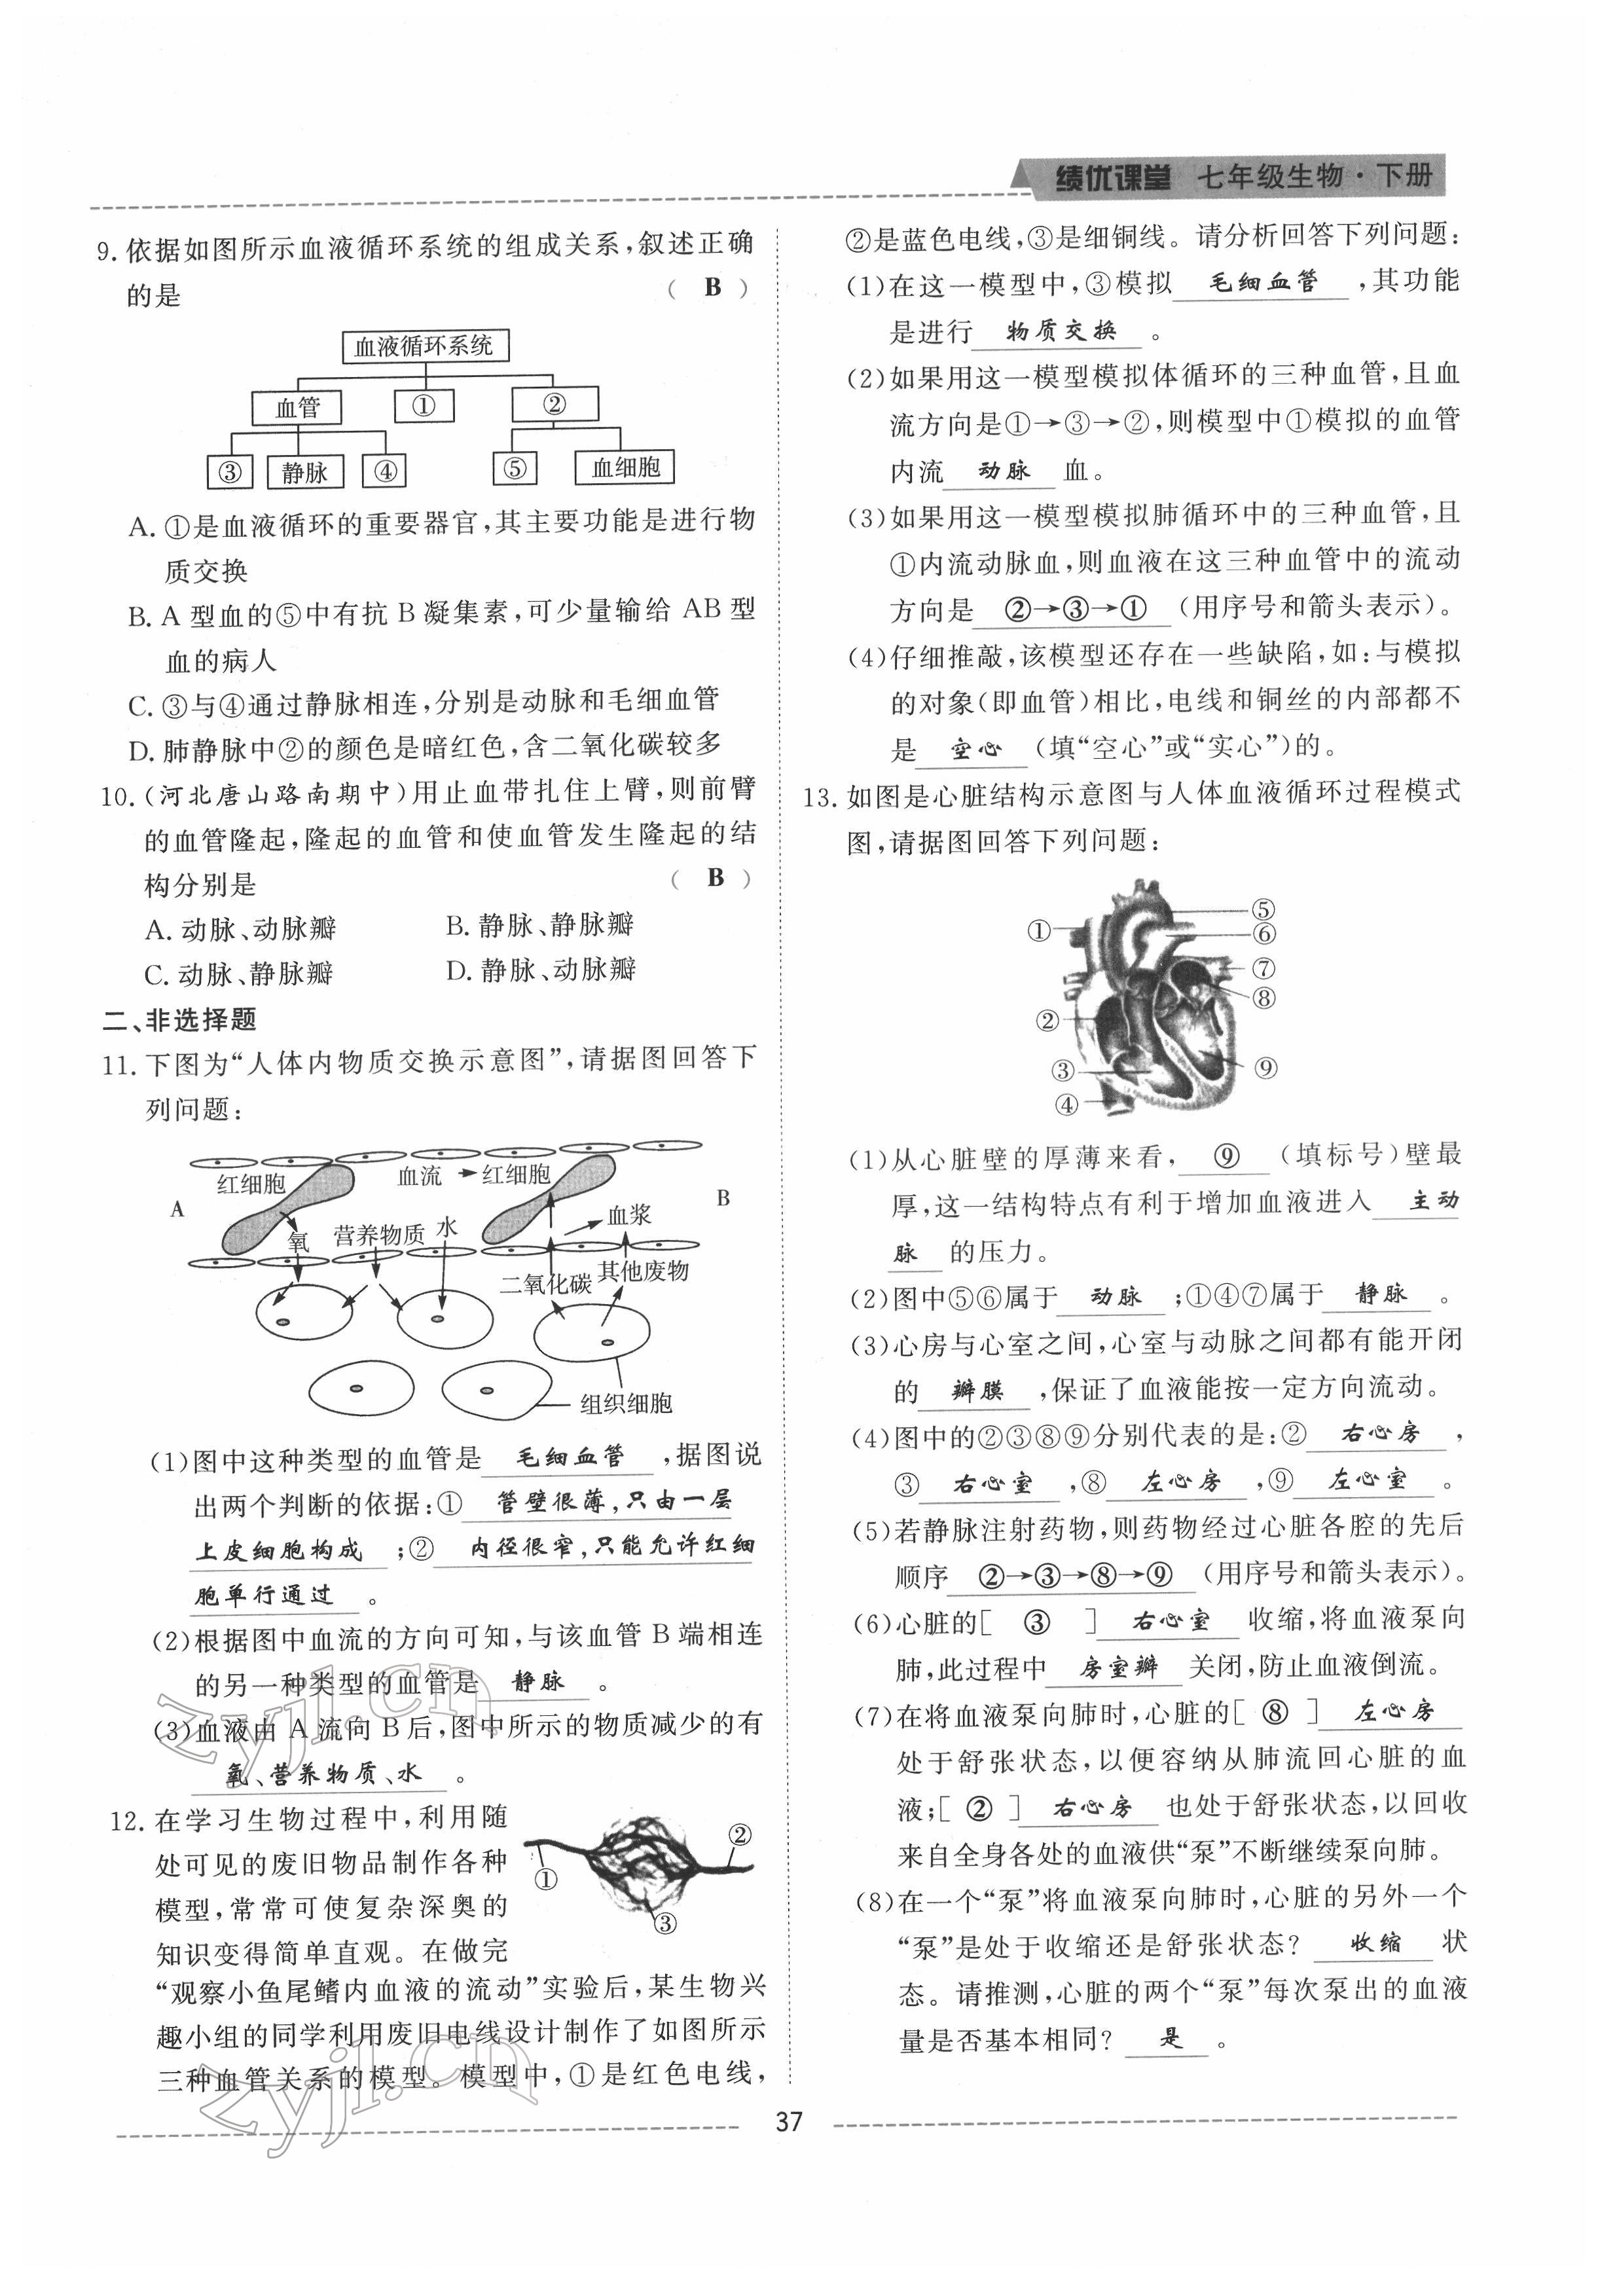 绩优课堂 七年级生物·下册
9. 依据如图所示血液循环系统的组成关系,叙述正确
的是 ( B )
血液循环系统
血管 ① ②
③ 静脉 ④ ⑤ 血细胞
A. ①是血液循环的重要器官,其主要功能是进行物
质交换
B. A 型血的⑤中有抗 B 凝集素,可少量输给 AB 型
血的病人
C. ③与④通过静脉相连,分别是动脉和毛细血管
D. 肺静脉中②的颜色是暗红色,含二氧化碳较多
10. (河北唐山路南期中)用止血带扎住上臂,则前臂
的血管隆起,隆起的血管和使血管发生隆起的结
构分别是 ( B )
A. 动脉、动脉瓣 B. 静脉、静脉瓣
C. 动脉、静脉瓣 D. 静脉、动脉瓣
二、非选择题
11. 下图为“人体内物质交换示意图”,请据图回答下
列问题:
红细胞 血流 红细胞
A B
氧 营养物质 水 血浆
二氧化碳 其他废物
组织细胞
(1)图中这种类型的血管是 毛细血管 ,据图说
出两个判断的依据:① 管壁很薄,只由一层
上皮细胞构成 ;② 内径很窄,只能允许红细
胞单行通过 。
(2)根据图中血流的方向可知,与该血管 B 端相连
的另一种类型的血管是 静脉 。
(3)血液由 A 流向 B 后,图中所示的物质减少的有
氧、营养物质、水 。
12. 在学习生物过程中,利用随
处可见的废旧物品制作各种
模型,常常可使复杂深奥的
知识变得简单直观。在做完
① ② ③
“观察小鱼尾鳍内血液的流动”实验后,某生物兴
趣小组的同学利用废旧电线设计制作了如图所示
三种血管关系的模型。模型中,①是红色电线,
②是蓝色电线,③是细铜线。请分析回答下列问题:
(1)在这一模型中,③模拟 毛细血管 ,其功能
是进行 物质交换 。
(2)如果用这一模型模拟体循环的三种血管,且血
流方向是①→③→②,则模型中①模拟的血管
内流 动脉 血。
(3)如果用这一模型模拟肺循环中的三种血管,且
①内流动脉血,则血液在这三种血管中的流动
方向是 ②→③→① (用序号和箭头表示)。
(4)仔细推敲,该模型还存在一些缺陷,如:与模拟
的对象(即血管)相比,电线和铜丝的内部都不
是 空心 (填“空心”或“实心”)的。
13. 如图是心脏结构示意图与人体血液循环过程模式
图,请据图回答下列问题:
① ⑤
⑥
⑦
⑧
②
③ ⑨
④
(1)从心脏壁的厚薄来看, ⑨ (填标号)壁最
厚,这一结构特点有利于增加血液进入 主动
脉 的压力。
(2)图中⑤⑥属于 动脉 ;①④⑦属于 静脉 。
(3)心房与心室之间,心室与动脉之间都有能开闭
的 瓣膜 ,保证了血液能按一定方向流动。
(4)图中的②③⑧⑨分别代表的是:② 右心房 ,
③ 右心室 ,⑧ 左心房 ,⑨ 左心室 。
(5)若静脉注射药物,则药物经过心脏各腔的先后
顺序 ②→③→⑧→⑨ (用序号和箭头表示)。
(6)心脏的[ ③ ] 右心室 收缩,将血液泵向
肺,此过程中 房室瓣 关闭,防止血液倒流。
(7)在将血液泵向肺时,心脏的[ ⑧ ] 左心房
处于舒张状态,以便容纳从肺流回心脏的血
液;[ ② ] 右心房 也处于舒张状态,以回收
来自全身各处的血液供“泵”不断继续泵向肺。
(8)在一个“泵”将血液泵向肺时,心脏的另外一个
“泵”是处于收缩还是舒张状态? 收缩 状
态。请推测,心脏的两个“泵”每次泵出的血液
量是否基本相同? 是 。
37
zyjl.cn
zyjl.cn